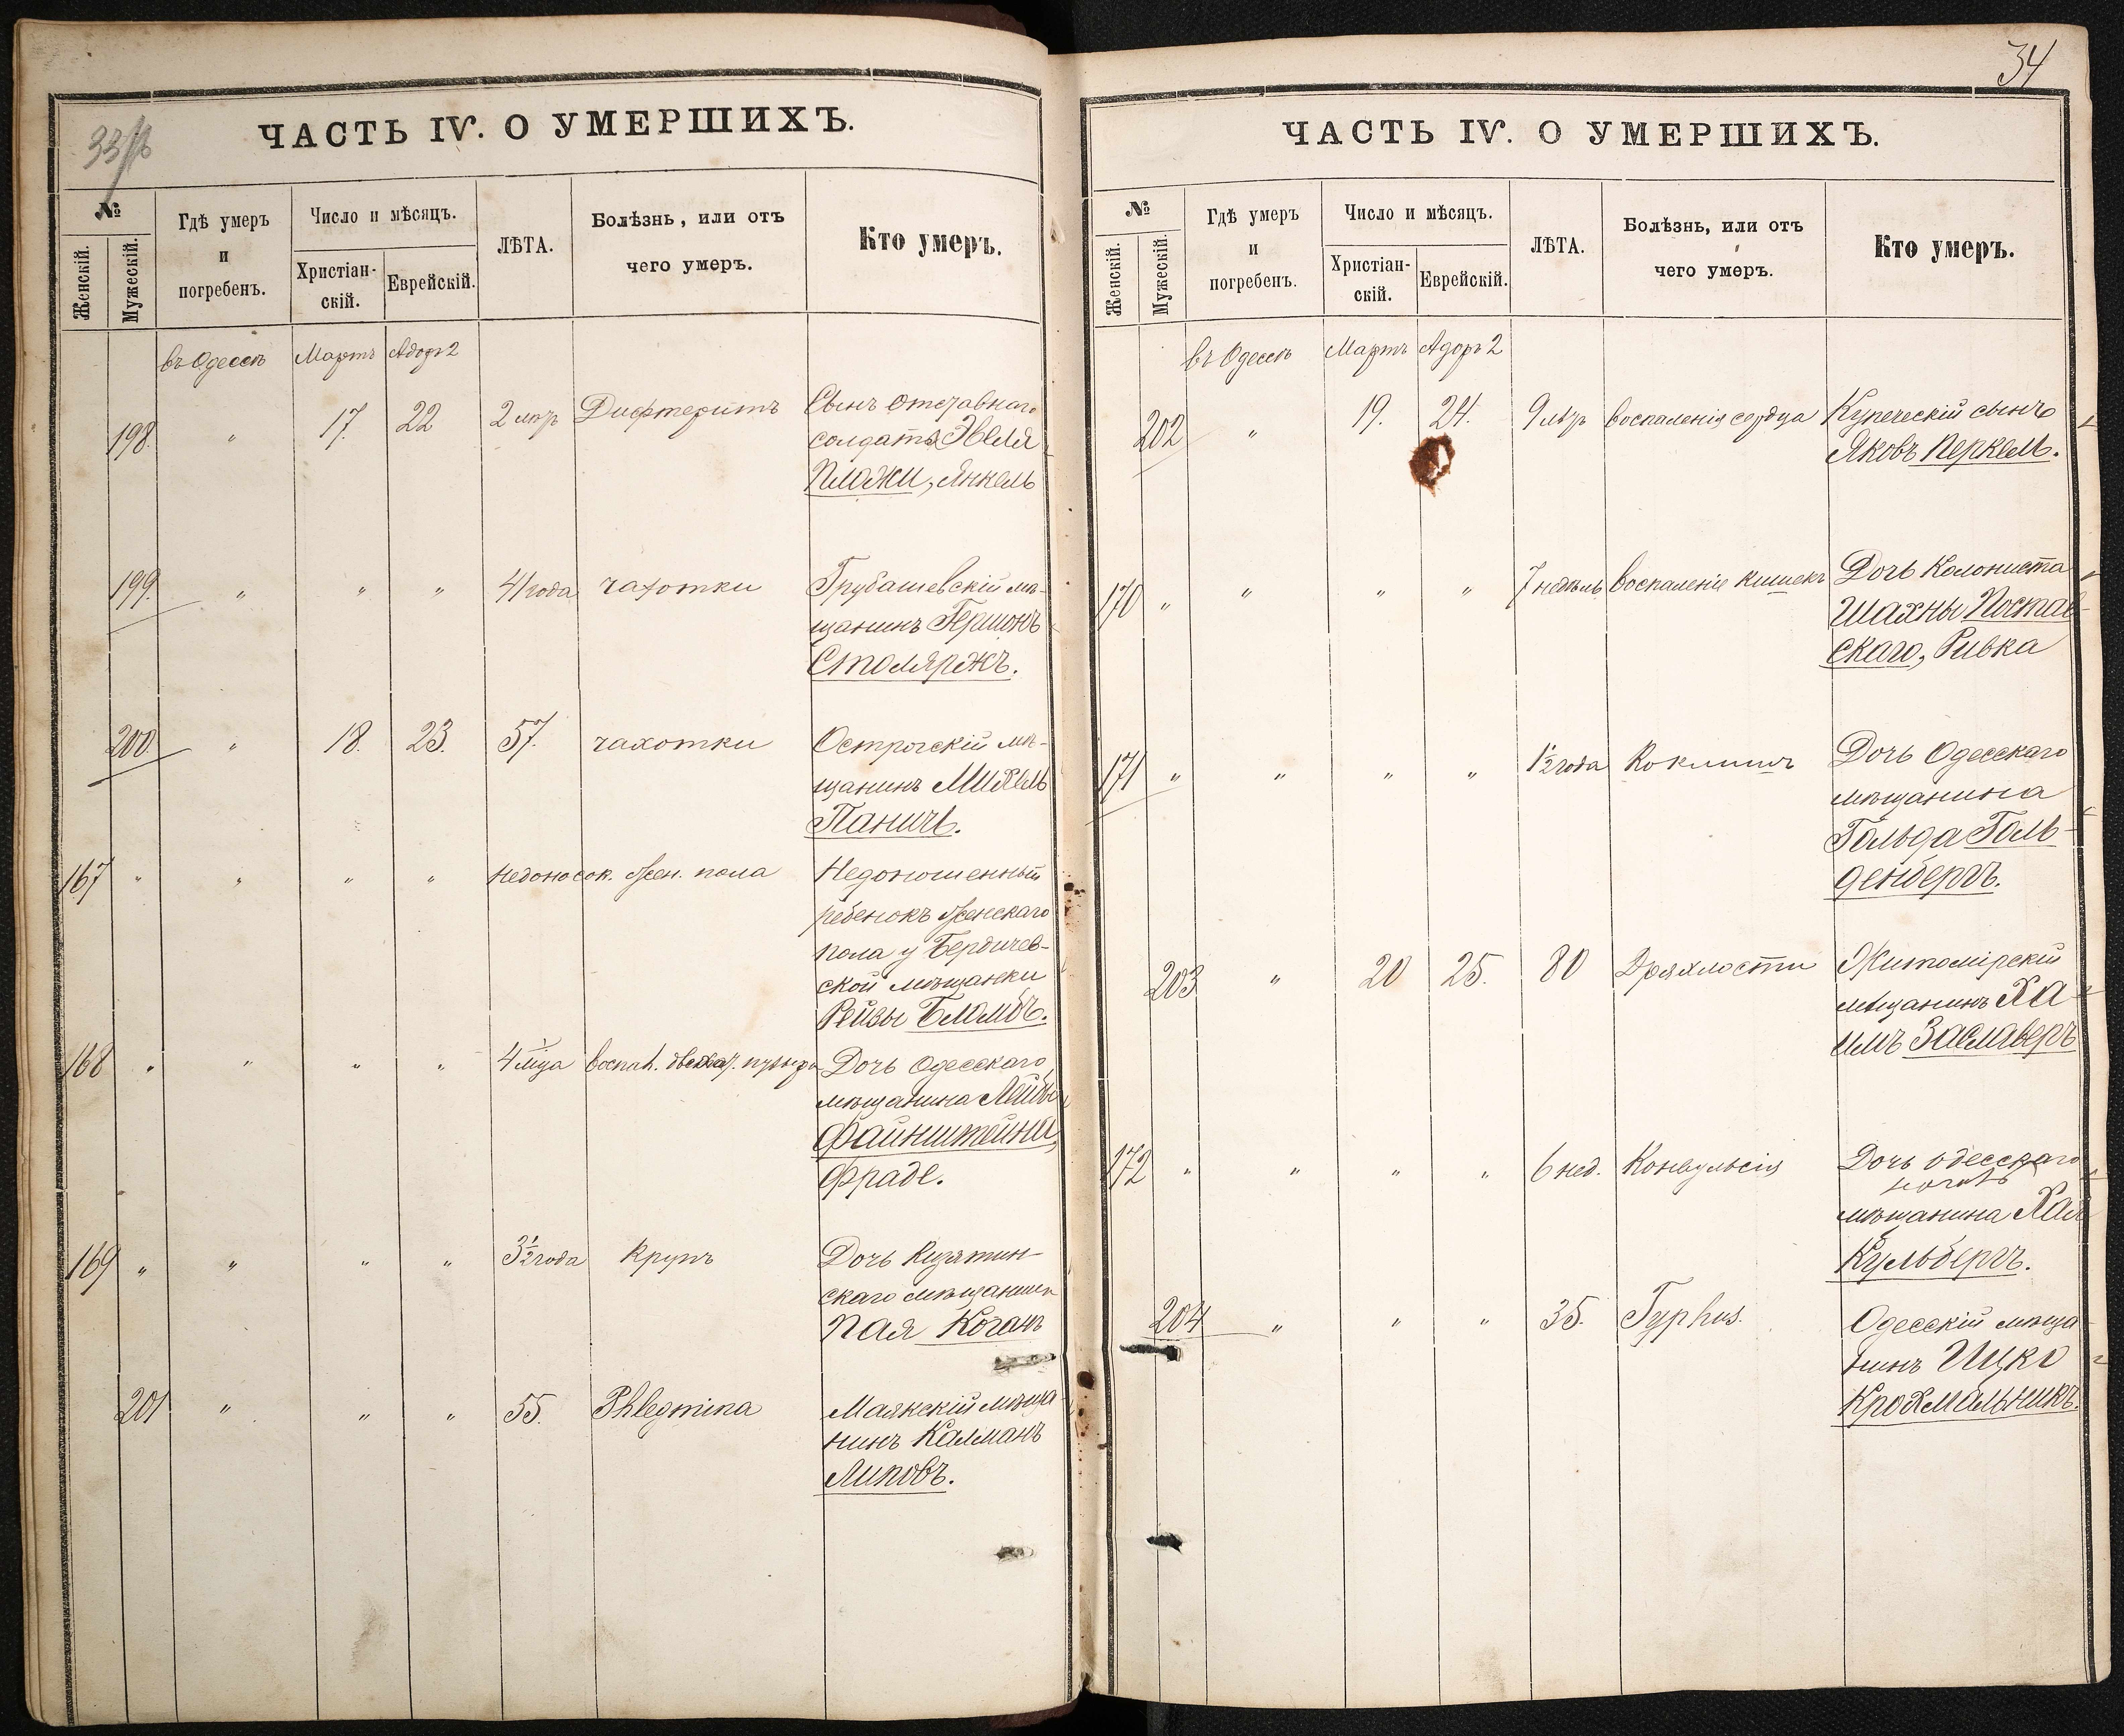 33
ЧАСТЬ IV. О УМЕРШИХЪ.
№
Женскій.
Мужескій.
Гдѣ умеръ
и
погребенъ.
Число и мѣсяцъ.
Христіан-
скій.
Еврейскій.
ЛѢТА.
Болѣзнь, или отъ
чего умеръ.
Кто умеръ.
въ Одессѣ Мартъ Адоръ 2
198. " 17. 22 2 лѣтъ Дифтеритъ Сынъ отставнаго
солдата
Плажи, Янкель
199. " " " 41 года чахотки Грубашевскій мѣ-
щанинъ Гершонъ
Столяржъ.
200. " 18. 23. 57. чахотки Острогскій мѣ-
щанинъ Михель
Паничъ.
167 " " " " недоносок. жен. пола Недоношенный
ребенокъ женскаго
пола у Бердичев-
ской мѣщанки
Рейзы Блюмбъ.
168 " " " " 4 м-ца воспал. пузыря Дочь Одесскаго
мѣщанина Лейбы
Файнштейна,
Фраде.
169 " " " " 3½ года Крупъ Дочь
скаго мѣщанина
Пая Коганъ
201 " " " 55. Phlegmina Маякскій мѣща
нинъ Калманъ
Липовъ.
34
ЧАСТЬ IV. О УМЕРШИХЪ.
№
Женскій.
Мужескій.
Гдѣ умеръ
и
погребенъ.
Число и мѣсяцъ.
Христіан-
скій.
Еврейскій.
ЛѢТА.
Болѣзнь, или отъ
чего умеръ.
Кто умеръ.
въ Одессѣ Мартъ Адоръ 2
202 " 19. 24. 9 лѣтъ воспаленія сердца Купеческій сынъ
Яковъ Перкель.
170 " " " " 7 недѣль воспаленіе кишекъ Дочь Колониста
Шахны Постав-
скаго, Ривка
171 " " " " 1½ года Коклюшъ Дочь Одесскаго
мѣщанина
Гольда Голь-
денбергъ.
203 " 20 25. 80 Дряхлости Житомірскій
мѣщанинъ Ха-
имъ Заславеръ
172 " " " " 6 нед. Конвульсія Дочь одесскаго
мѣщанина Хая
Кульбергъ.
204 " " " 35. Typhus. Одесскій мѣща
нинъ Ицко
Крохмальникъ.